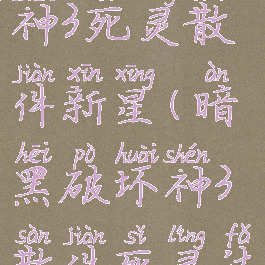 神彡死灵散
jiàn xīn xīng àn
件新星(暗
hēi pò huài shén
黑破坏神彡
sàn jiàn sǐ líng fǎ
散件死灵法